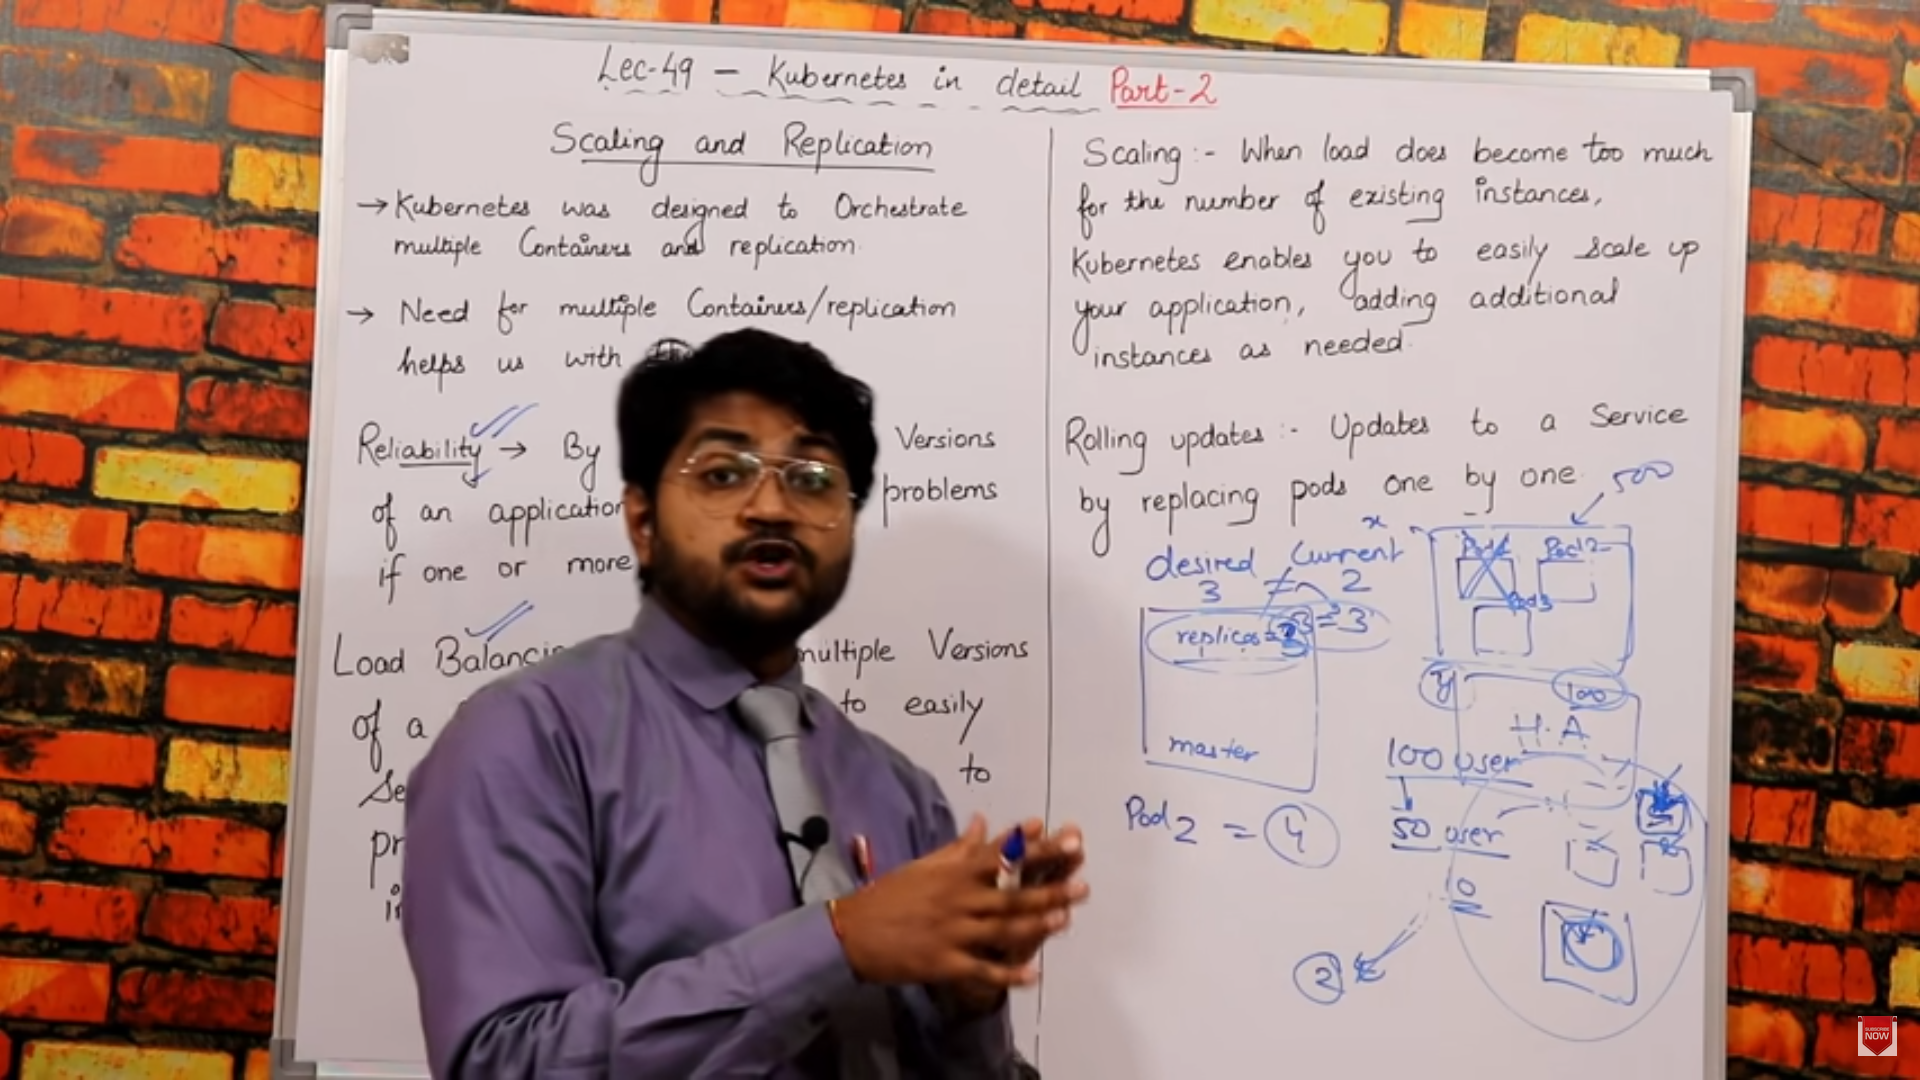 Lec-49 - Kubernetes in detail Part-2
Scaling and Replication
→ Kubernetes was designed to Orchestrate
multiple Containers and replication.
→ Need for multiple Containers/replication
helps us with
Reliability → By Versions
of an application problems
if one or more
Load Balancin multiple Versions
of a to easily
Se to
pr
in
Scaling :- When load does become too much
for the number of existing instances,
Kubernetes enables you to easily scale up
your application, adding additional
instances as needed.
Rolling updates :- Updates to a Service
by replacing pods one by one.
500
x
desired current
3 ≠ 2
3 = 3
replicas = 3
master
Pod2 = 4
Pod1 Pod2
Pod3
y 100
H.A
100 user
50 user
10
2
SUBSCRIBE
NOW